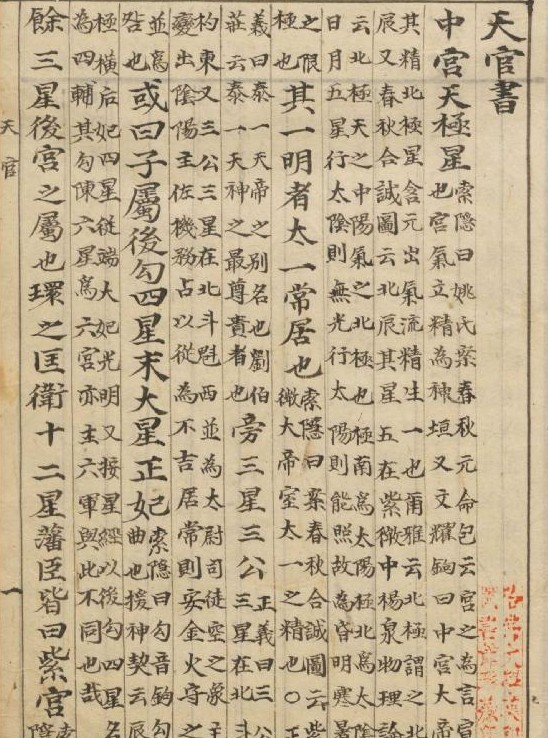 天官書
中宮天極星索隱曰姚氏案春秋元命包云宮之為言宣也宮氣立精為神垣又文耀鈎曰中宮大帝
其精北極星含元出氣流精生一也爾雅云北極謂之北
辰又春秋合誠圖云北辰其星五在紫微中楊泉物理論
云北極天之中陽氣之北極也極南為太陽極北為太陰
日月五星行太陰則無光行太陽則能照故為昏明寒暑
之限極也其一明者太一常居也索隱曰案春秋合誠圖云紫微大帝室太一之精也○正
義曰泰一天帝之別名也劉伯莊云泰一天神之最尊貴者也旁三星三公正義曰三公三星在北斗
杓東又三公三星在北斗魁西並為太尉司徒空之象主
變出陰陽主佐機務占以從為不吉居常則安金火守之
並為咎也或曰子屬後勾四星末大星正妃索隱曰勾音鈎勾曲也援神契云辰
極橫后妃四星從端大妃光明又按星經以後勾四星名
為四輔其勾陳六星為六宮亦主六軍與此不同也哉
餘三星後宮之屬也環之匡衛十二星藩臣皆曰紫宮索隱
天官
一